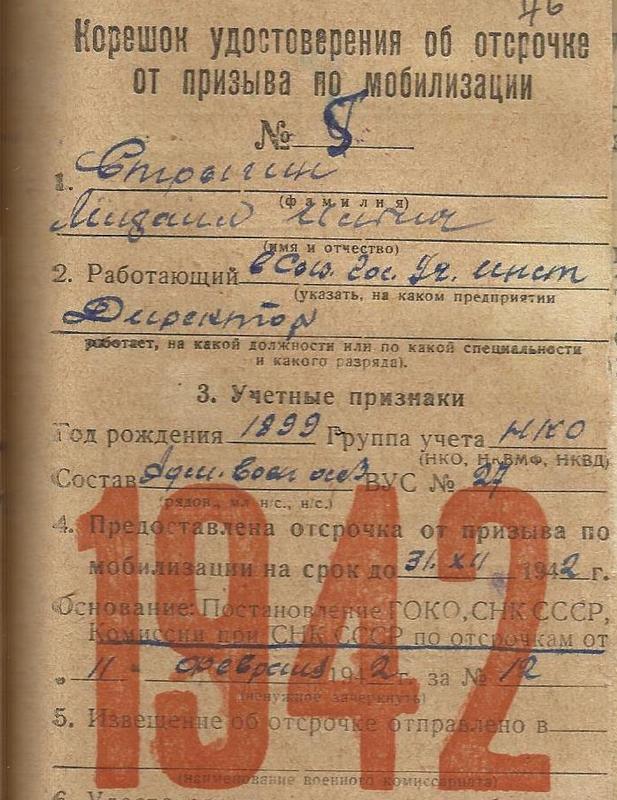 76
Корешок удостоверения об отсрочке
от призыва по мобилизации
№ 8
1. Стрыгин
(фамилия)
Михаил
(имя и отчество)
2. Работающий в Гос. инст
(указать, на каком предприятии
Директор
работает, на какой должности или по какой специальности
и какого разряда).
3. Учетные признаки
Год рождения 1899 Группа учета НКО
(НКО, НкВМФ, НКВД)
Состав ВУС № 27
(рядов., мл н/с., н/с.)
4. Предоставлена отсрочка от призыва по
мобилизации на срок до 31.XII 1942 г.
Основание: Постановление ГОКО, СНК СССР,
Комиссии при СНК СССР по отсрочкам от
„ 11 " февраля 1942 г. за № 12
(ненужное зачеркнуть)
5. Извещение об отсрочке отправлено в
(наименование военного комиссариата)
6.
1942